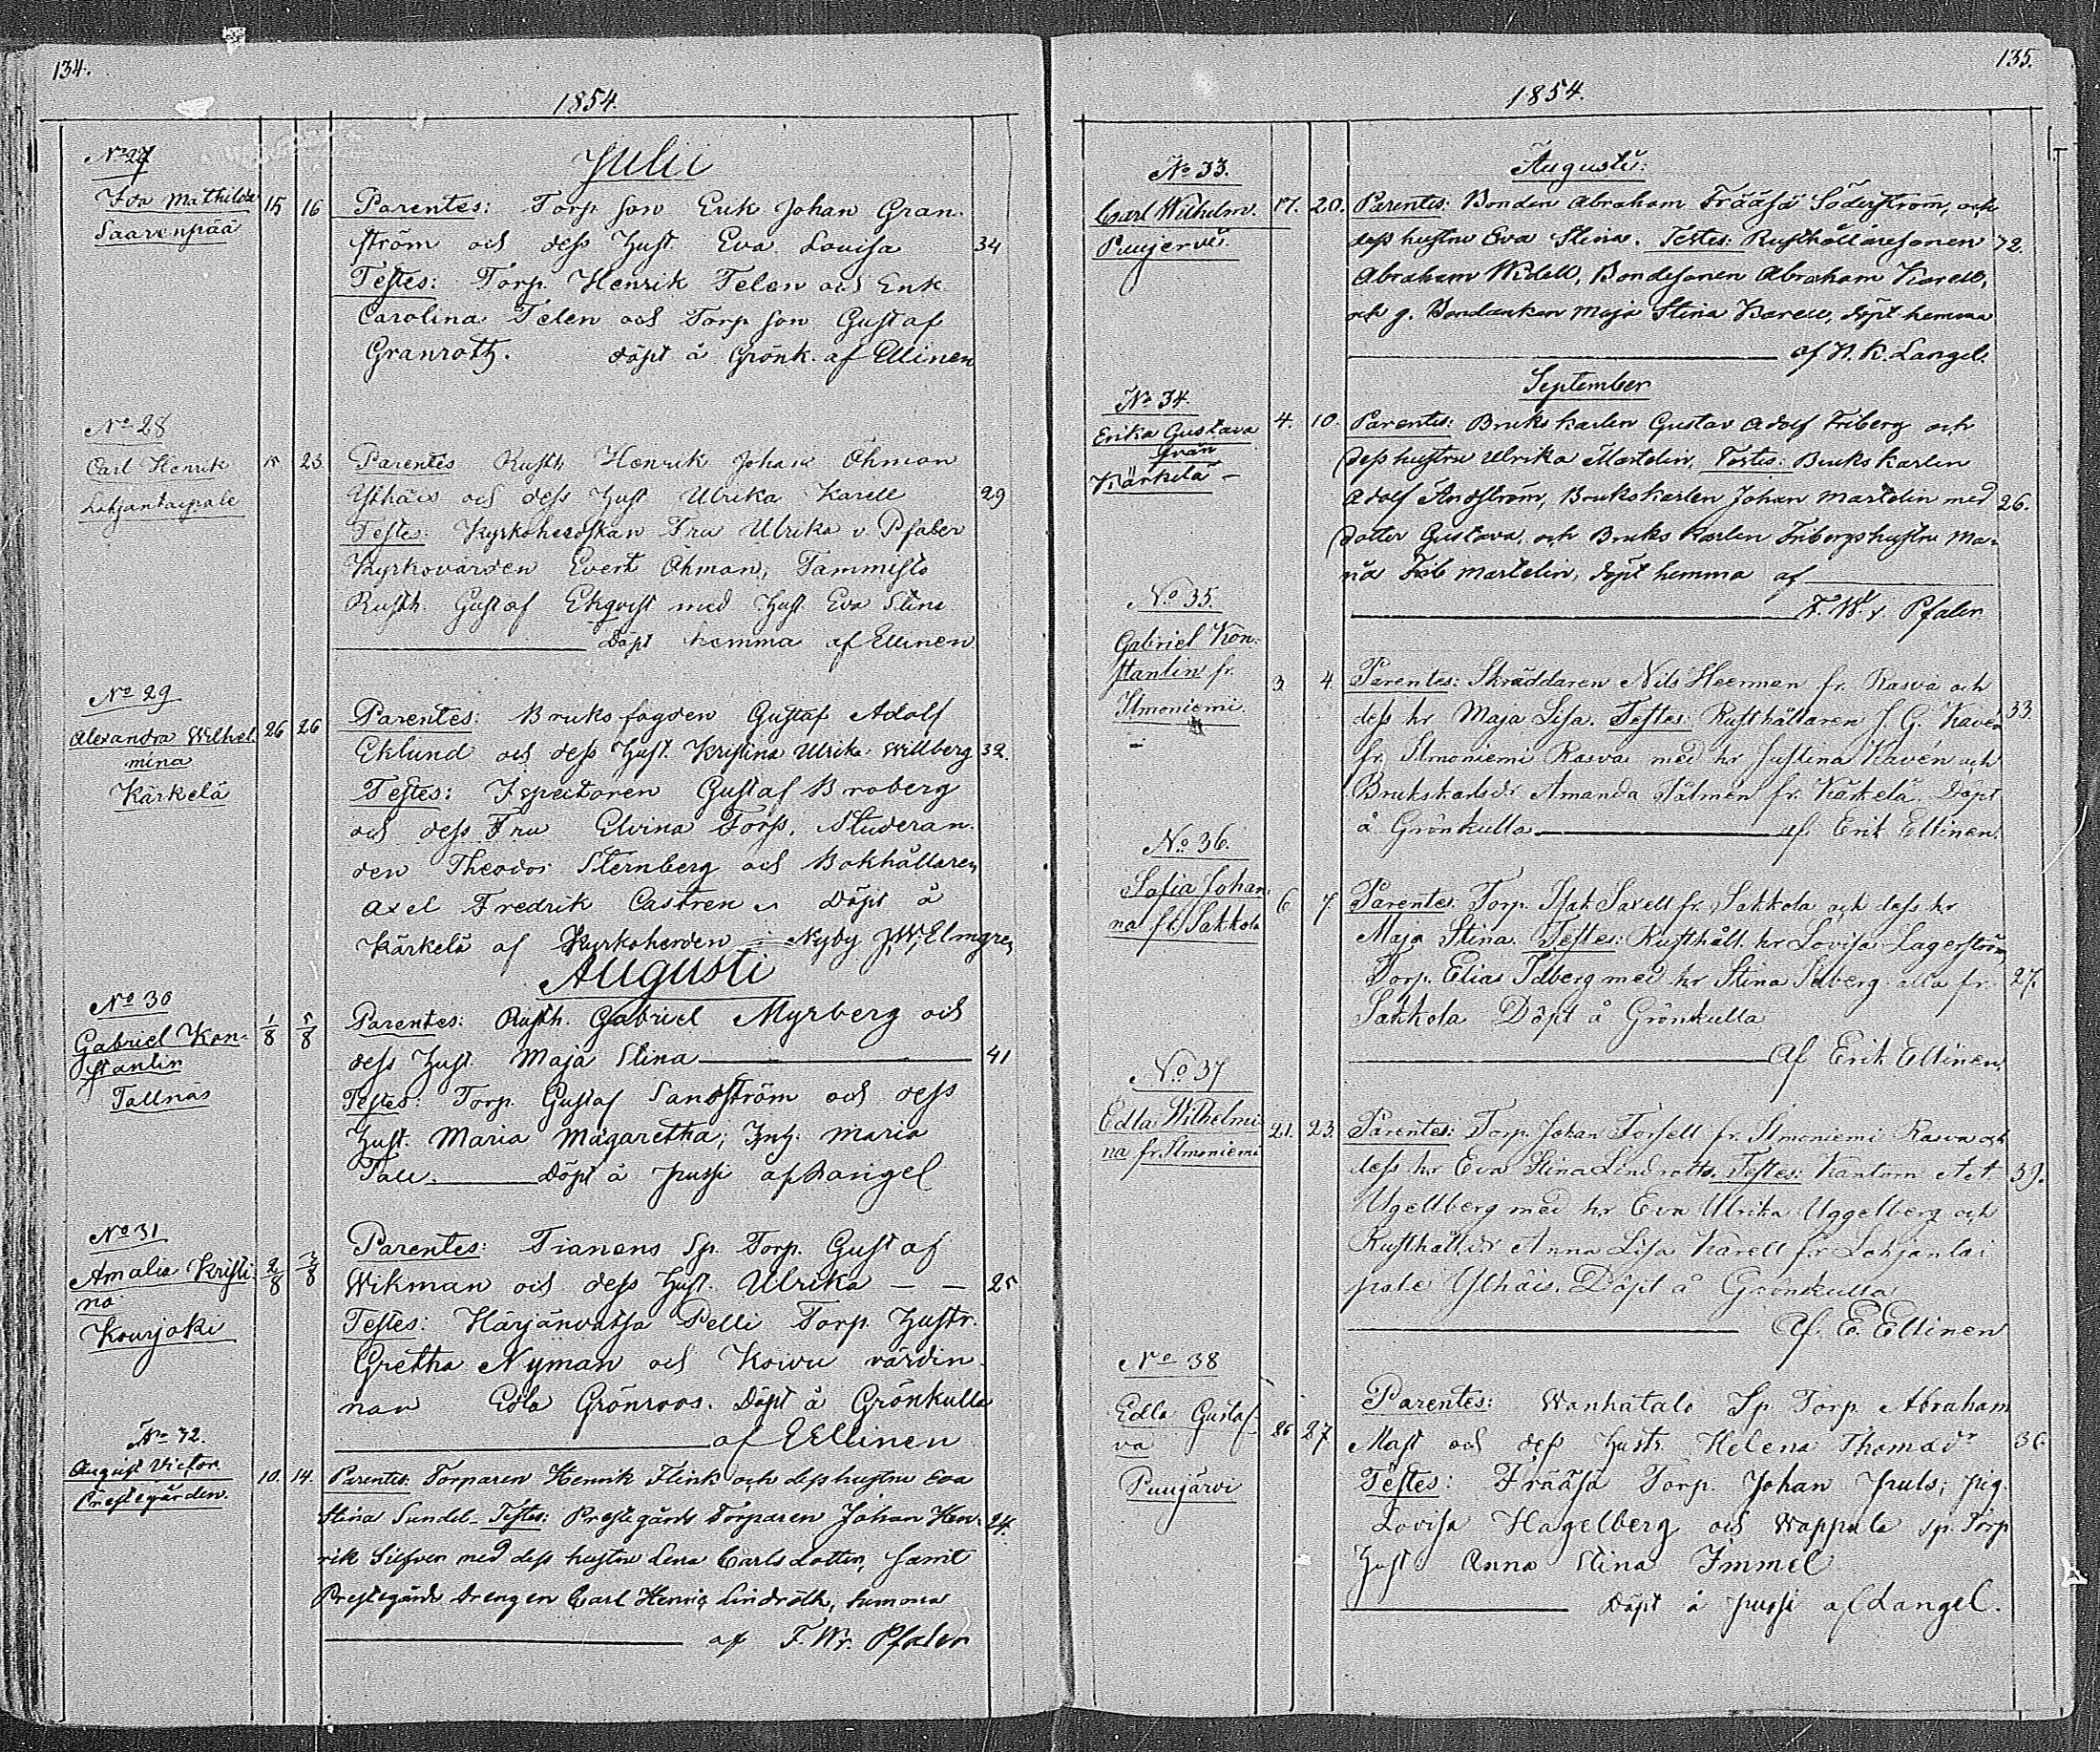 134.
1854.
Julii
No 27
Ida Mathilda
Saarenpää
15 16
Parentes: Torp son Erik Johan Gran-
ström och dess Hust Eva Lovisa 34
Testes: Torp. Henrik Felen och Enk
Carolina Felen och Torp son Gustaf
Granroth. döpt å Grönk. af Ellinen
No 28
Carl Henrik
Lohjantaipale
15 23
Parentes Rusth Henrik Johan Öhman
Ylhäis och dess Hust Ulrika Karell 29
Teste: Kyrkoherdskan Fru Ulrika v. Pfaler
Kyrkovärden Evert Öhman, Tammisto
Rusth. Gustaf Ekqvist med Hust. Eva Stina
Döpt hemma af Ellinen
No 29
Alexandra Wilhel-
mina
Kärkelä
26 26
Parentes: Bruksfogden Gustaf Adolf
Eklund och dess Hust. Kristina Ulrika Willberg 32.
Testes: Ispectoren Gustaf Broberg
och dess Fru Elvina Forss, Studeran-
den Theodor Sternberg och Bokhållaren
Axel Fredrik Castren Döpt å
Kärkelä af Kyrkoherden i Nyby J.W. Elmgren
Augusti
No 30
Gabriel Kon-
stantin
Tallnäs
1/8 5/8
Parentes: Rusth. Gabriel Myrberg och
dess Hust. Maja Stina 41
Testes: Torp. Gustaf Sandström och dess
Hust. Maria Magaretha; Inh. Maria
Tall. Döpt å Pussi af Langel
No 31
Amalia Kristi-
na
Kourjoki
2/8 3/8
Parentes: Tianens Sp. Torp. Gustaf
Wikman och dess Hust. Ulrika — — 25
Testes: Härjänvatsa Pelli Torp. Hustr.
Gretha Nyman och Koivu värdin-
nan Edla Grönroos. Döpt å Grönkulla
af Ellinen
No 32.
August Victor
Prestegården.
10. 14.
Parentes: Torparen Henrik Flink och dess hustru Eva
Stina Sundel. Testes: Prestegårds Torparen Johan Hen- 24.
rik Silfver med dess hustru Lena Carlsdotter, samt
Prestegårds drengen Carl Henric Lindroth, hemma
af F. W. v. Pfaler
135.
1854.
Augusti.
No 33.
Carl Wilhelm.
Puujervi.
17. 20.
Parentes: Bonden Abraham Frääsä Söderström, och
dess hustru Eva Stina. Testes: Rusthållaresonen 72.
Abraham Widell, Bondesonen Abraham Karell,
och g. Bondenkan Maja Stina Karell, döpt hemma
af H. K. Langel.
September
No 34.
Erika Gustava
från
Kärkelä –
4. 10.
Parentes: Bruks karlen Gustav Adolf Friberg och
dess hustru Ulrika Martelin. Testes: Bruks karlen
Adolf Andström, Brukskarlen Johan Martelin med 26.
dotter Gustava, och Bruks karlen Fribergs hustru Ma-
ria Martelin, döpt hemma af
F. W. v. Pfaler
No 35.
Gabriel Kon-
stantin fr.
Ilmoniemi.
3. 4.
Parentes: Skräddaren Nils Heerman fr. Rasva och
dess hr. Maja Lisa. Testes: Rusthållaren J. G. Kavén 33.
fr. Ilmoniemi Rasva med hr Justina Kavén och
Brukskarlsdr Amanda Tälmén fr. Kärkelä. Döpt
å Grönkulla af Erik Ellinen.
No 36.
Sofia Johan-
na fr. Sakkola
6 7
Parentes: Torp. Isak Savell fr. Sakkola och dess hr.
Maja Stina. Testes: Rusthåll. hr Lovisa Lagerström
Torp. Elias Idberg med hr Stina Idberg alla fr. 27.
Sakkola Döpt å Grönkulla
Af Erik Ellinen.
No 37
Edla Wilhelmi-
na fr. Ilmoniemi
21. 23.
Parentes: Torp. Johan Forsell fr. Ilmoniemi Rasva och
dess hr Eva Stina Lindroth. Testes: Kantorn 39.
Uggelberg med hr Eva Ulrika Uggelberg och
Rusthåll. dr Anna Lisa Karell fr Lohjantai-
pale Ylhäis. Döpt å Grönkulla
Af. E. Ellinen
No 38
Edla Gustaf-
va
Puujärvi
26 27
Parentes: Wanhatalo Sp Torp Abraham
Mast och dess Hustr. Helena Thomasdr 36.
Testes: Frääsä Torp. Johan Puls; Pig.
Lovisa Hagelberg och Wappula sp. Torp
Hust Anna Stina Immel
Döpt å Pussi af Langel.